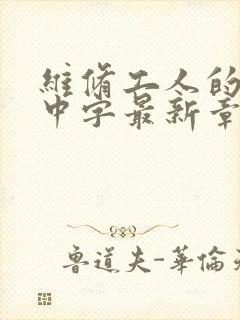 維脩工人的
中字最新章
魯道夫-華倫